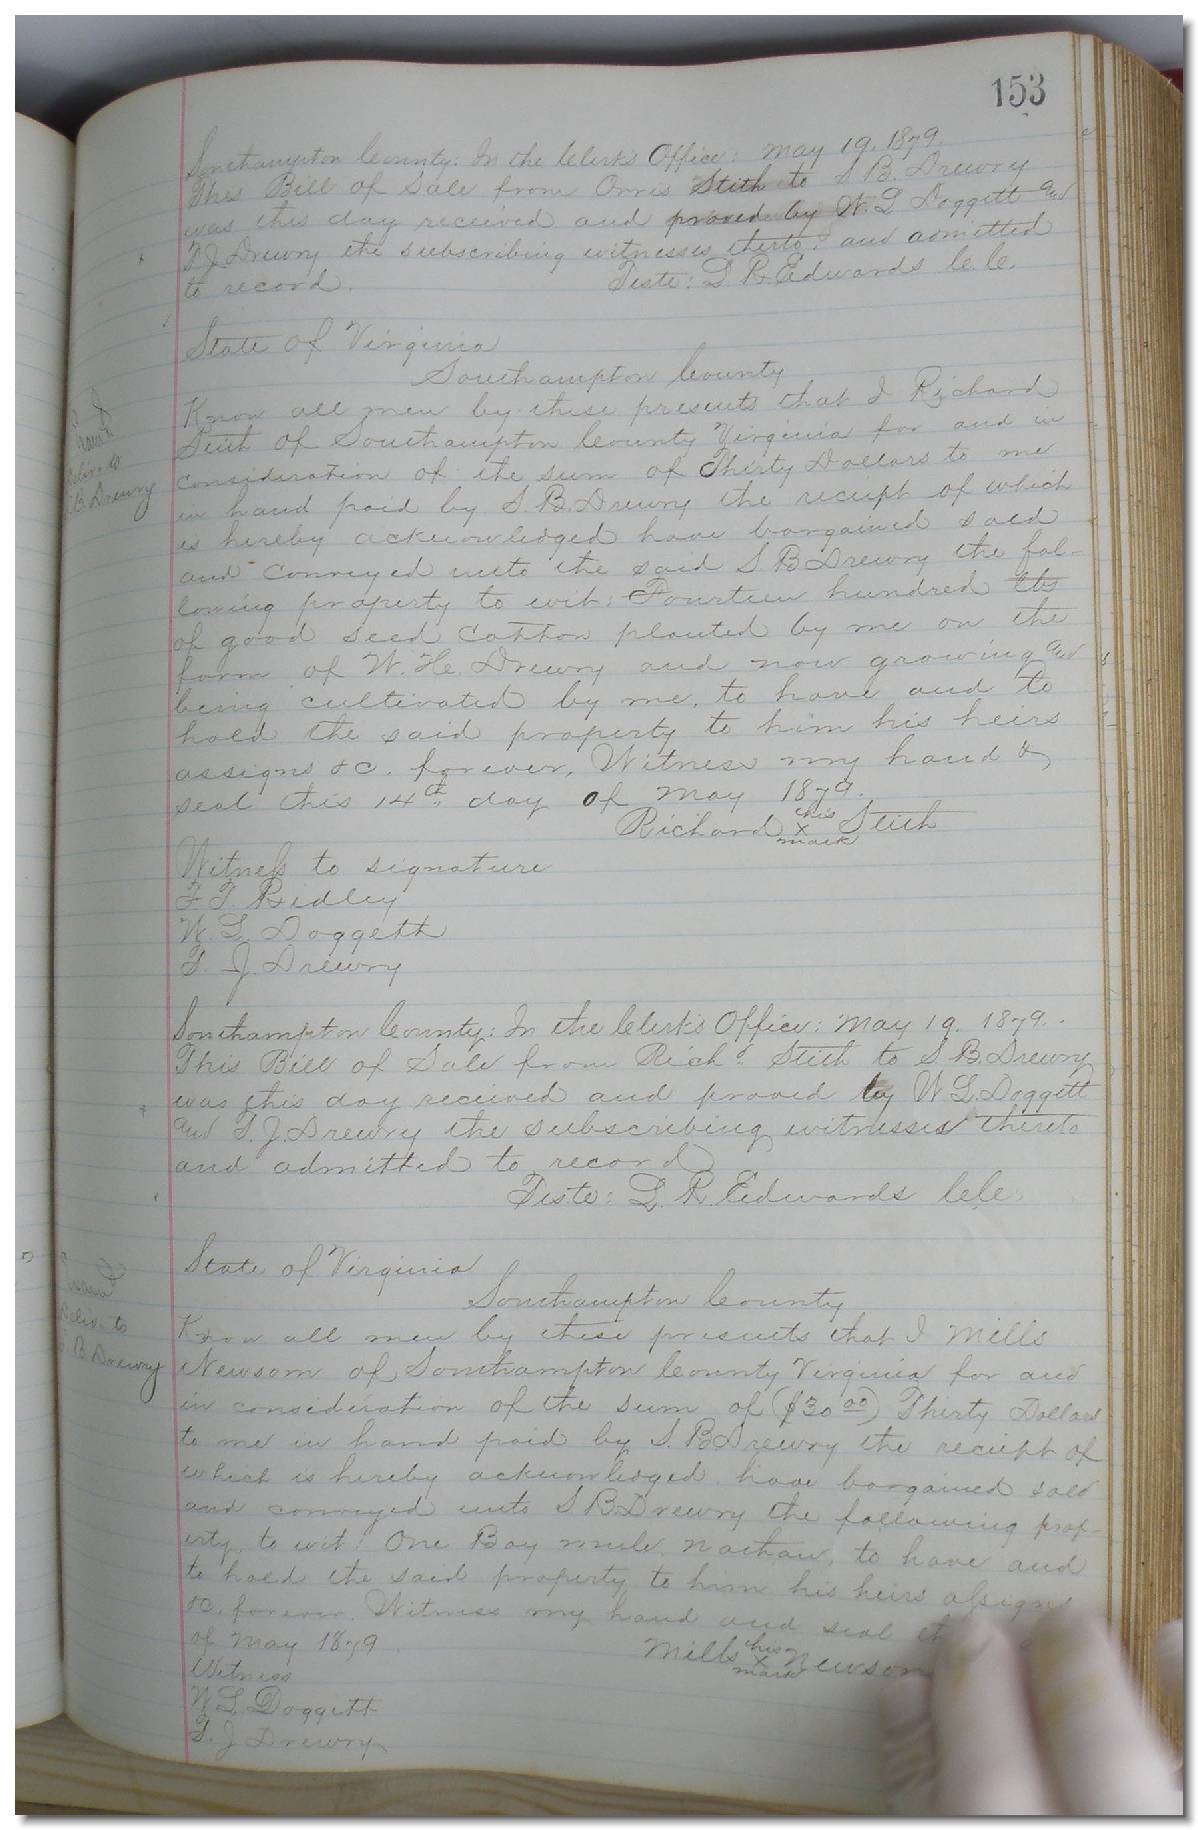 153
Southampton County: In the Clerk's Office: May 19. 1879.
This Bill of Sale from Orris Stith to S B. Drewry
was this day received and proved by W. L Doggett and
T J Drewry the subscribing witnesses thereto: and admitted
to record.
Teste: L R. Edwards C.C.
State of Virginia
Southampton County
Know all men by these presents that I Richard
Stith of Southampton County Virginia for and in
consideration of the sum of Thirty Dollars to me
in hand paid by S. B. Drewry the receipt of which
is hereby acknowledged have bargained sold
and conveyed unto the said S B Drewry the fol-
lowing property to wit: Fourteen hundred lbs
of good seed cotton planted by me on the
farm of W. H. Drewry and now growing and
being cultivated by me, to have and to
hold the said property to him his heirs
assigns &c. forever. Witness my hand &
seal this 14th day of May 1879.
Richard his x mark Stith
Witness to signature
Ridley
W. L. Doggett
T. J. Drewry
Southampton County: In the Clerk's Office: May 19. 1879.
This Bill of Sale from Richd. Stith to S B. Drewry
was this day received and proved by W L. Doggett
and T. J. Drewry the subscribing witnesses thereto
and admitted to record
Teste: L. R. Edwards C.C.
B. Drewry
State of Virginia
Southampton County
Know all men by these presents that I Mills
Newsom of Southampton County Virginia for and
in consideration of the sum of ($30 00) Thirty Dollars
to me in hand paid by S. B Drewry the receipt of
which is hereby acknowledged have bargained sold
and conveyed unto S B. Drewry the following prop-
erty, to wit: One Bay mule, to have and
to hold the said property to him his heirs assigns
&c. forever. Witness my hand and seal
of May 1879
Mills his x mark Newsom
Witness
W. L. Doggett
T. J Drewry
to
B. Drewry